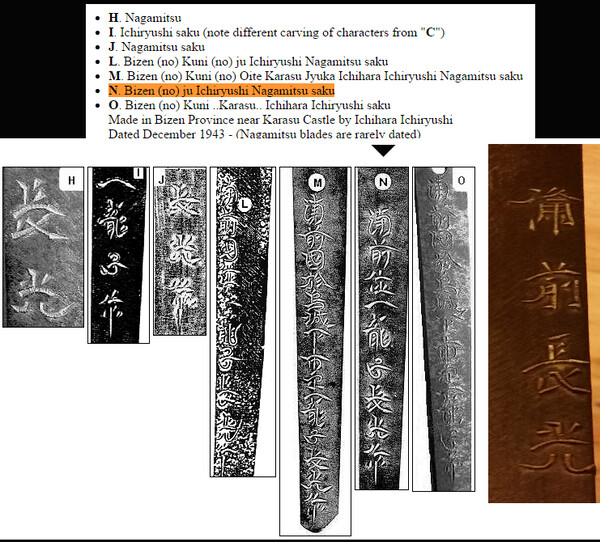 • H. Nagamitsu
• I. Ichiryushi saku (note different carving of characters from "C")
• J. Nagamitsu saku
• L. Bizen (no) Kuni (no) ju Ichiryushi Nagamitsu saku
• M. Bizen (no) Kuni (no) Oite Karasu Jyuka Ichihara Ichiryushi Nagamitsu saku
• N. Bizen (no) ju Ichiryushi Nagamitsu saku
• O. Bizen (no) Kuni ..Karasu.. Ichihara Ichiryushi saku
Made in Bizen Province near Karasu Castle by Ichihara Ichiryushi
Dated December 1943 - (Nagamitsu blades are rarely dated)
H
長光
I
一龍子作
J
長光作
L
備前國住一龍子長光作
M
備前國於烏城下市原一龍子長光作
N
備前住一龍子長光作
O
備前長光